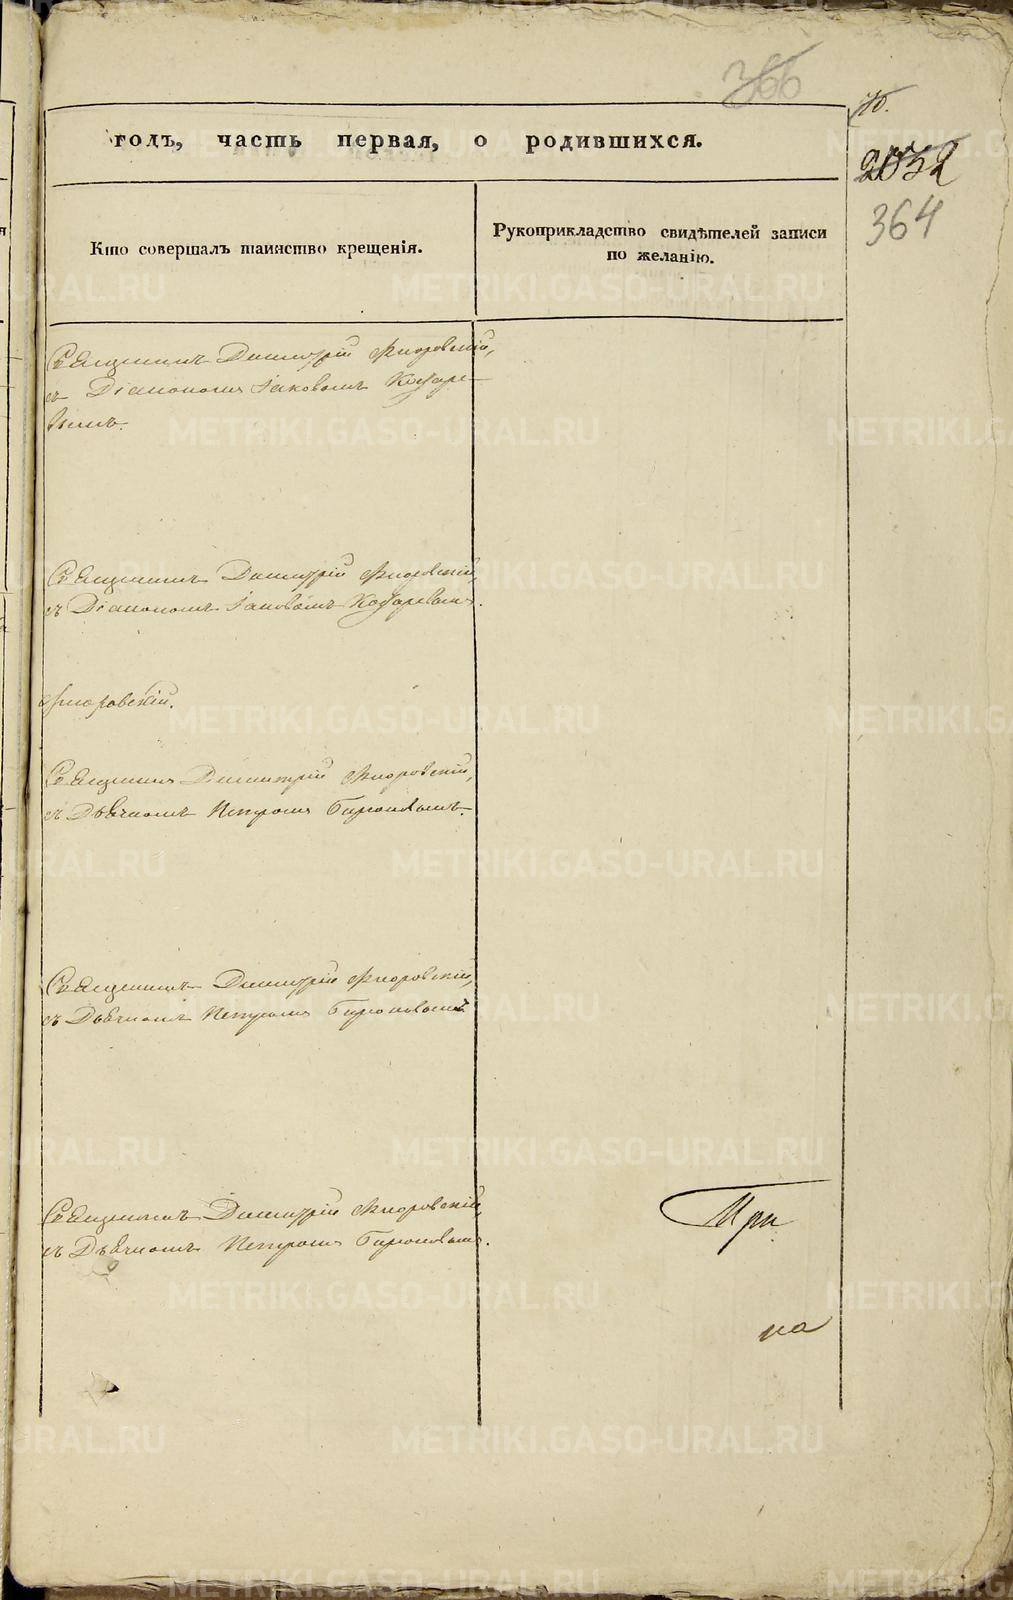 366
годъ, часть первая, о родившихся.
2032
364
Кто совершалъ таинство крещенія.
Рукоприкладство свидѣтелей записи
по желанію.
Священникъ Димитрій Флоровскій,
съ Діакономъ Іаковомъ
вымъ.
Священникъ Димитрій Флоровскій,
съ Діакономъ Іаковомъ
Флоровскій.
Священникъ Димитрій Флоровскій,
съ Дьячкомъ Петромъ Бирюковымъ.
Священникъ Димитрій Флоровскій,
съ Дьячкомъ Петромъ Бирюковымъ
Священникъ Димитрій Флоровскій,
съ Дьячкомъ Петромъ Бирюковымъ.
При
на
METRIKI.GASO-URAL.RU